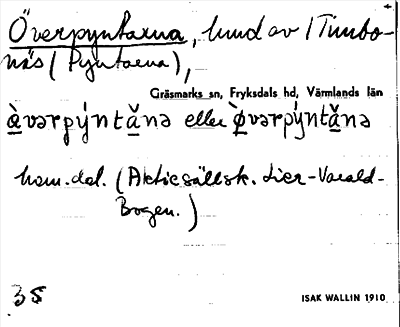 Överpyntarna, lund av 1 Timbo-
näs (Pyntarna),
Gräsmarks sn, Fryksdals hd, Värmlands län
hem. del. (Aktiesällsk. Lier-Varald-
Bogen.)
35
ISAK WALLIN 1910